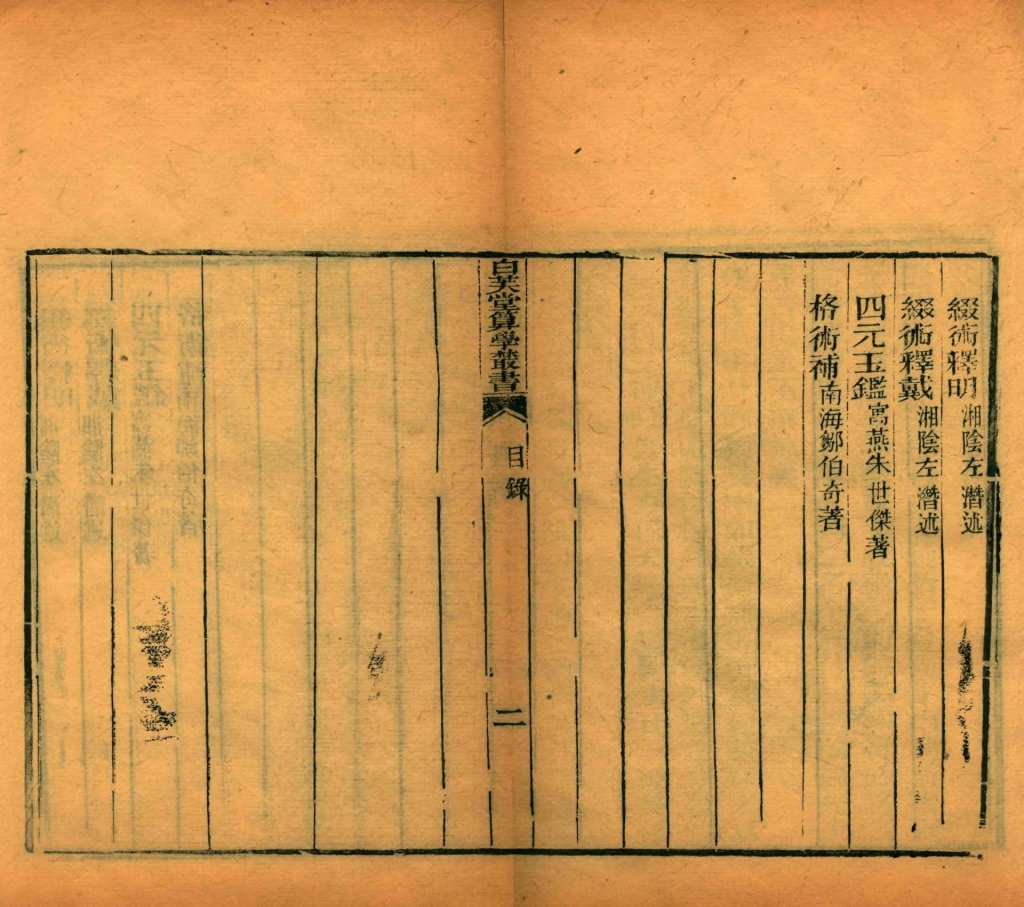 綴術釋明湘陰左潛述
綴術釋戴湘陰左潛述
四元玉鑑寓燕朱世傑著
格術補南海鄒伯奇著
白芙堂算學叢書
目錄
二